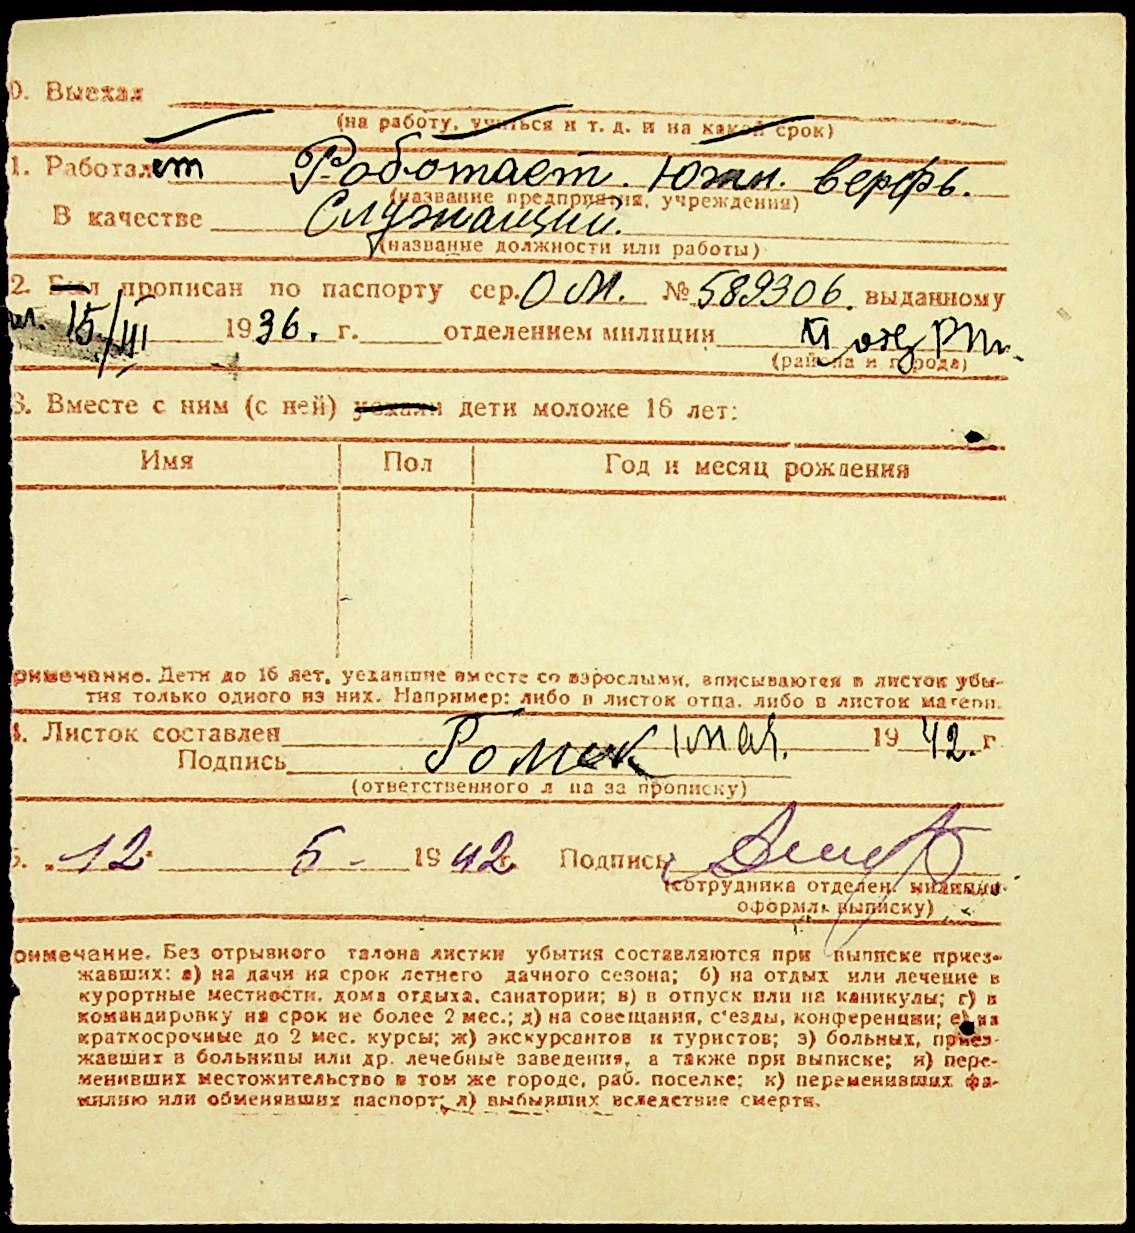 0. Выехал
(на работу, учиться и т. д. и на какой срок)
1. Работалет Работает. Южн. верфь.
(название предприятия, учреждения)
В качестве Служащий.
(название должности или работы)
2. Был прописан по паспорту сер. ОМ. № 589306. выданному
15/III 1936. г. отделением милиции VI отд РКм.
(района и города)
3. Вместе с ним (с ней) уехали дети моложе 16 лет:
Имя Пол Год и месяц рождения
римечание. Дети до 16 лет, уехавшие вместе со взрослыми, вписываются в листок убы-
тия только одного из них. Например: либо в листок отца, либо в листок матери.
4. Листок составлен 1 мая. 1942. г
Подпись
(ответственного л ца за прописку)
5. „12“ 5 - 1942 г. Подпись
(сотрудника отделен. милиции
оформл. выписку)
римечание. Без отрывного талона листки убытия составляются при выписке приез-
жавших: а) на дачи на срок летнего дачного сезона; б) на отдых или лечение в
курортные местности, дома отдыха, санатории; в) в отпуск или на каникулы; г) в
командировку на срок не более 2 мес.; д) на совещания, с'езды, конференции; е) на
краткосрочные до 2 мес. курсы; ж) экскурсантов и туристов; з) больных, приез-
жавших в больницы или др. лечебные заведения, а также при выписке; и) пере-
менивших местожительство в том же городе, раб. поселке; к) переменивших фа-
милию или обменявших паспорт; л) выбывших вследствие смерти.